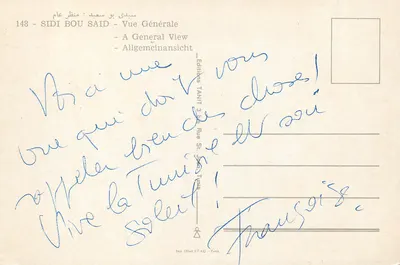 سيدي بو سعيد : منظر عام
148 - SIDI BOU SAID - Vue Générale
- A General View
- Allgemeinansicht
Editions TANIT
Voici une
vue qui doit vous
rappeler bien des choses !
Vive la Tunisie et son
soleil !
Françoise.